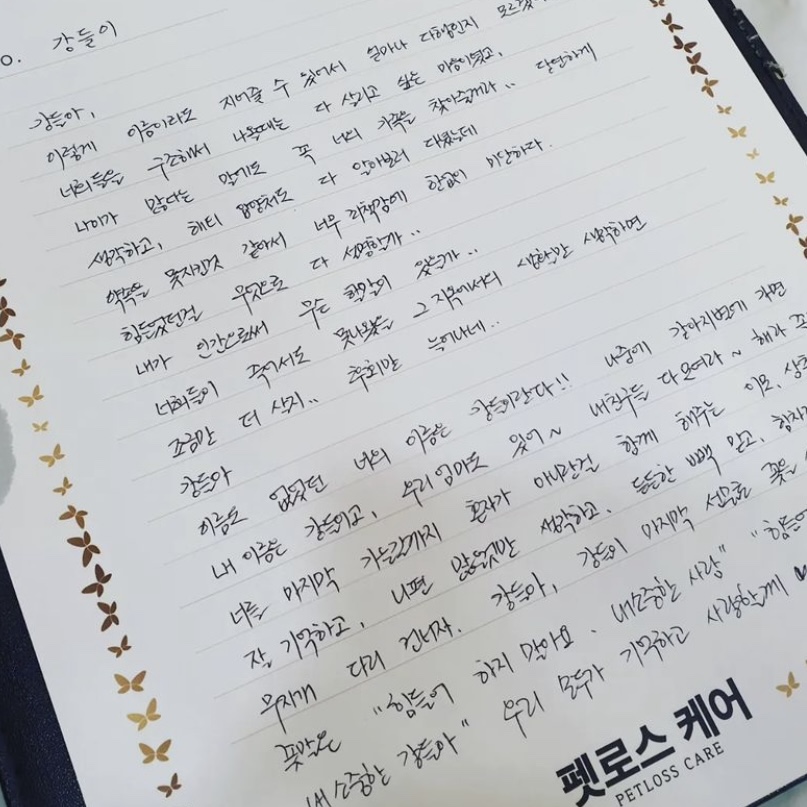 o. 강들이
강들아,
이렇게 이름이라도 지어줄 수 있어서 얼마나 다행인지
너희들을 구조해서 나올때는 다 살리고 싶은 마음이였고,
나이가 많다는 말에도 꼭 너의 가족을 찾아줄게라.. 당연하게
생각하고, 해티 입양처도 다 알아보러 다녔는데
약속을 못지킨것 같아서 너무 죄책감에 한없이 미안하다.
힘들었던걸 무엇으로 다 설명할까..
내가 인간으로써 무슨 할말이 있을까..
너희들이 죽어서도 못나왔을 그 지옥에서의 생활만 생각하면
조금만 더 살지.. 후회만 늘어나네..
강들아
이름도 없었던 너의 이름은 강들이란다!! 나중에 강아지별에 가면
내 이름은 강들이고, 우리 엄마도 있어~ 내친구들 다 모여라~ 해라
너를 마지막 가는길까지 혼자가 아니란걸 함께 해주는 이모,
잘 기억하고, 니편 많았잖 생각하고, 든든한 빽 믿고,
무지개 다리 건너자. 강들아, 강들이 마지막 선물로 꽃을
꽃말은 "힘들어 하지 말아요. 내소중한 사람"
내 소중한 강들아" 우리 모두가 기억하고 사랑할게
펫로스 케어
PETLOSS CARE